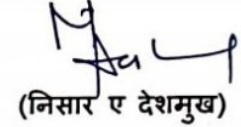 (निसार ए देशमुख)